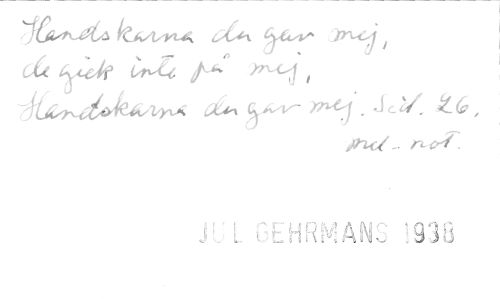 Handskarna du gav mej,
de gick inte på mej,
Handskarna du gav mej. Sid. 26.
med not.
JUL GEHRMANS 1938